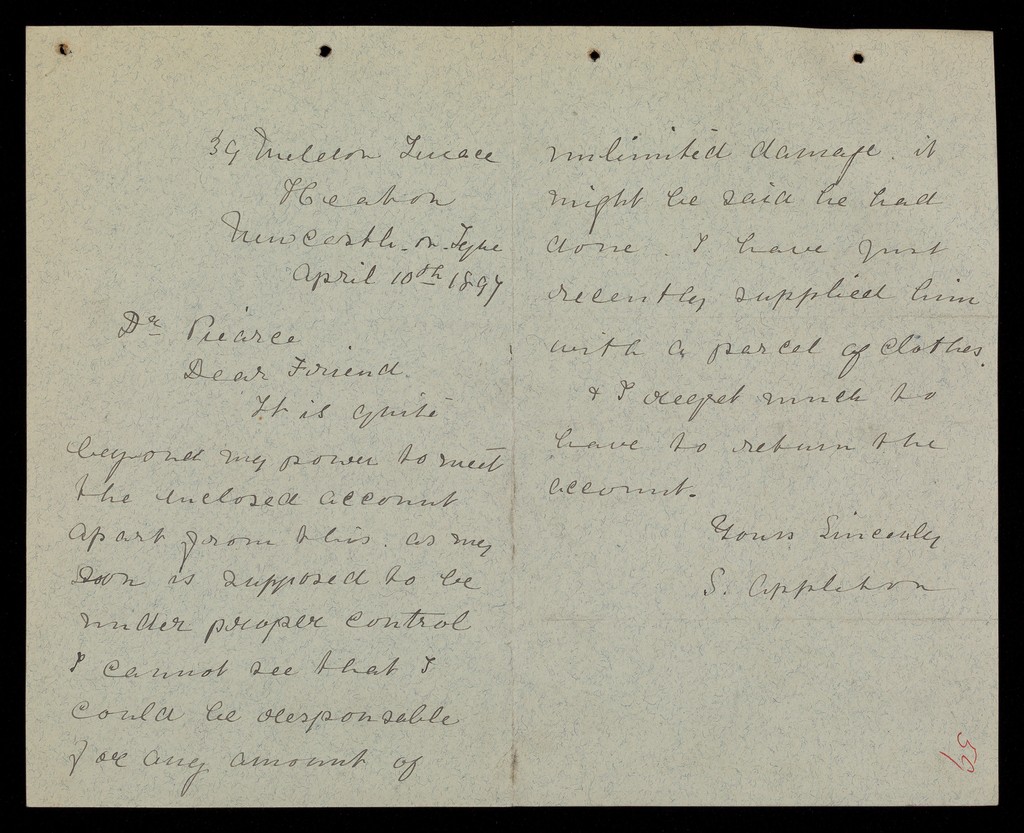 39 Meldon Terrace
Heaton
Newcastle-on-Tyne
April 10th 1897
Dr Pierce
Dear Friend.
It is quite
beyond my power to meet
the enclosed account
apart from this. as my
soon is supposed to be
under proper control
I cannot see that I
could be responsable
for any amount of
unlimited damage. it
might be said he had
done. I have just
recently supplied him
with a parcel of clothes.
& I regret much to
have to return the
account.
Yours Sincerely
S. Appleton
59